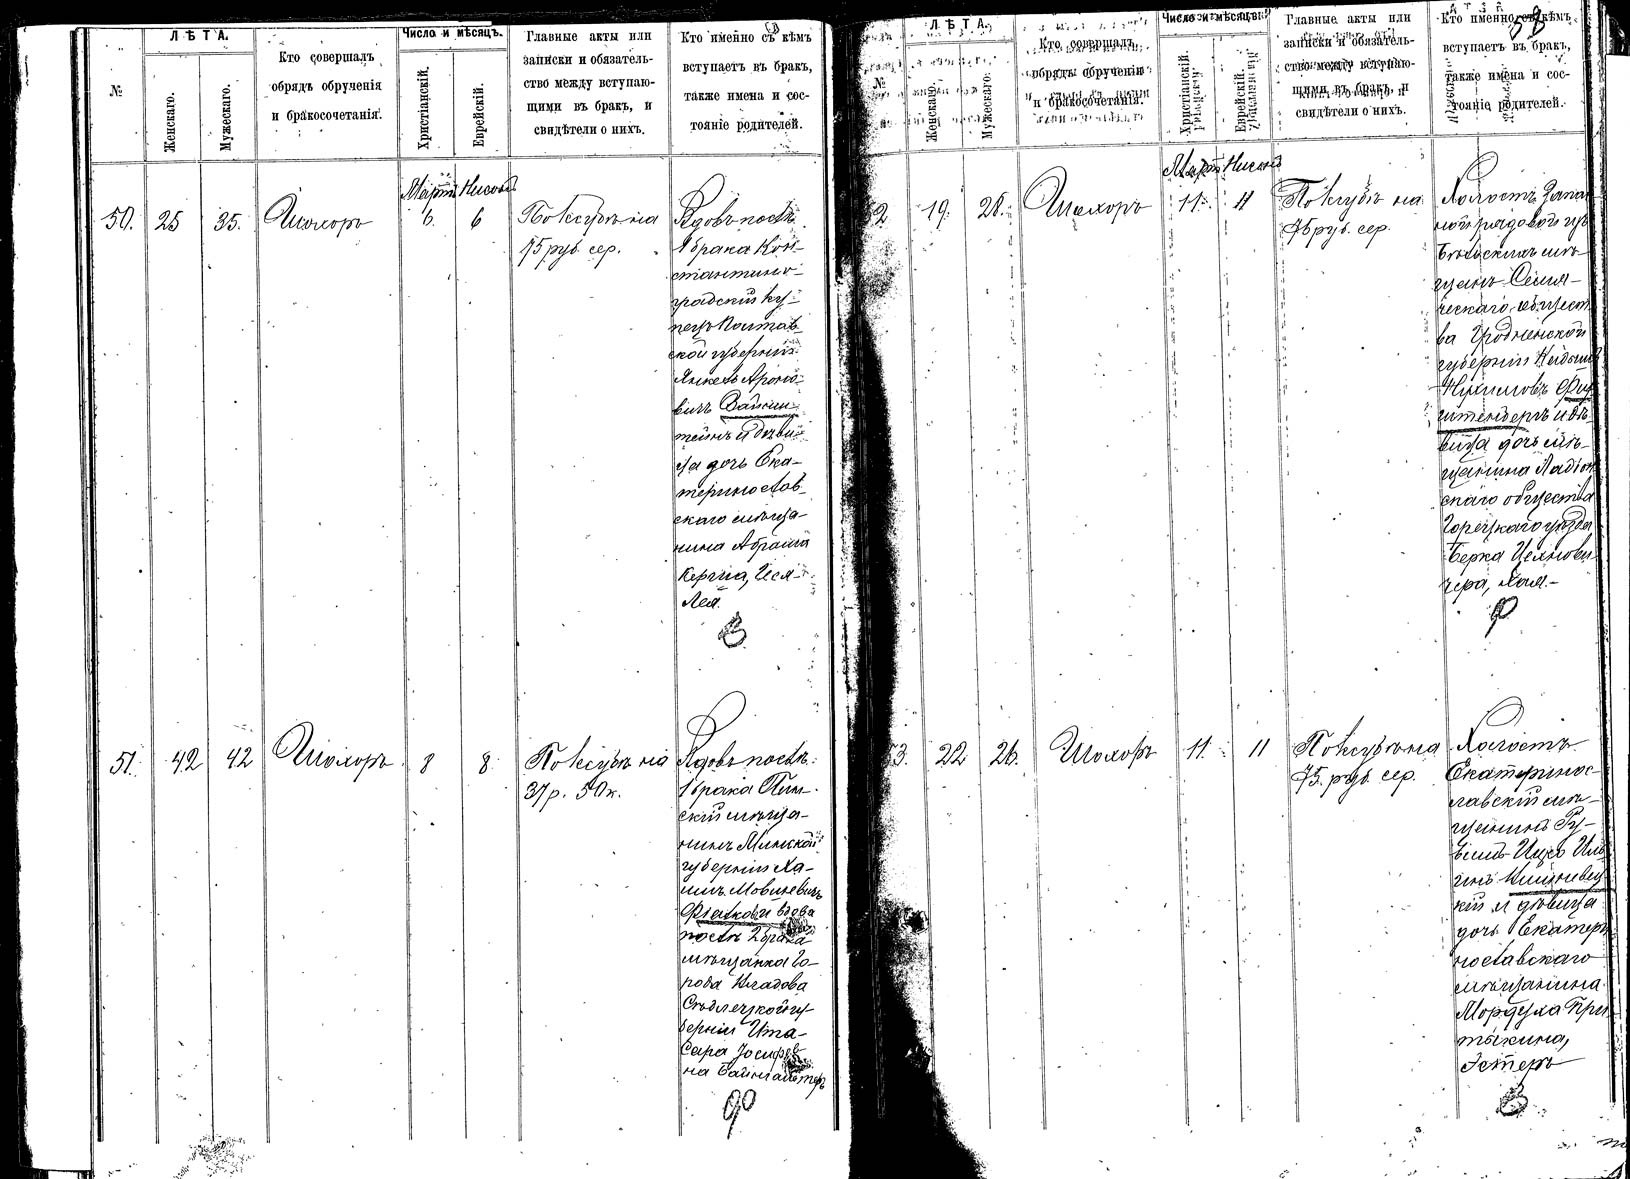 №
ЛѢТА.
Женскаго.
Мужескаго.
Кто совершалъ
обрядъ обрученія
и бракосочетанія.
Число и мѣсяцъ.
Христіанскій.
Еврейскій.
Главные акты или
записки и обязатель-
ство между вступаю-
щими въ бракъ, и
свидѣтели о нихъ.
Кто именно съ кѣмъ
вступаетъ въ бракъ,
также имена и сос-
тояніе родителей.
50.
25
35.
Шохоръ
Мартъ
6
Нисонъ
6
По ксубѣ на
75 руб. сер.
Вдовъ послѣ
1 брака Кон-
стантино-
градскій ку-
пецъ Полтав-
ской губерніи
Янкель Ароно-
вичъ Вайнш-
тейнъ и дѣви-
ца дочь Ека-
теринослав-
скаго мѣща-
нина Абрама
Кергна, Песя-
Лея.
В
51.
42
42
Шохоръ
8
8
По ксубѣ на
37 р. 50 к.
Вдовъ послѣ
1 брака Пин-
скій мѣща-
нинъ Минской
губерніи Ха-
имъ Мовшевичъ
Фіалков и вдова
послѣ 2 брака
мѣщанка го-
рода Кладова
Сѣдлецкой гу-
берніи Ита-
Сара Іосифов
на
№
ЛѢТА.
Женскаго.
Мужескаго.
Кто совершалъ
обрядъ обрученія
и бракосочетанія.
Число и мѣсяцъ.
Христіанскій.
Еврейскій.
Главные акты или
записки и обязатель-
ство между вступаю-
щими въ бракъ, и
свидѣтели о нихъ.
Кто именно съ кѣмъ
вступаетъ въ бракъ,
также имена и сос-
тояніе родителей.
52
19.
28.
Шохоръ
Мартъ
11.
Нисонъ
11
По ксубѣ на
75 руб. сер.
Холостъ Запас
ной рядовой изъ
мѣ-
щанъ
ческаго общест
ва Гродненской
губерніи
Нохимовъ
штендеръ и дѣ-
вица дочь мѣ-
щанина
скаго общества
Горецкаго уѣзда
Берка
чера, Хая.
53.
22
26.
Шохоръ
11
11
По ксубѣ на
75 руб. сер.
Холостъ
Екатеринос-
лавскій мѣ-
щанинъ Ру-
вимъ-Ицко
Кишиневец
кій и дѣвица
дочь Екатери
нославскаго
мѣщанина
Мордуха При
тыкина,
Эстеръ
В